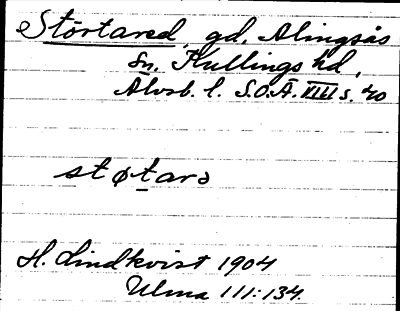 Störtared, gd, Alingsås
sn, Kullings hd,
Älvsb. l. S.O.Ä. VIII s. 40
støtarə
H. Lindkvist 1904
Ulma 111:134.